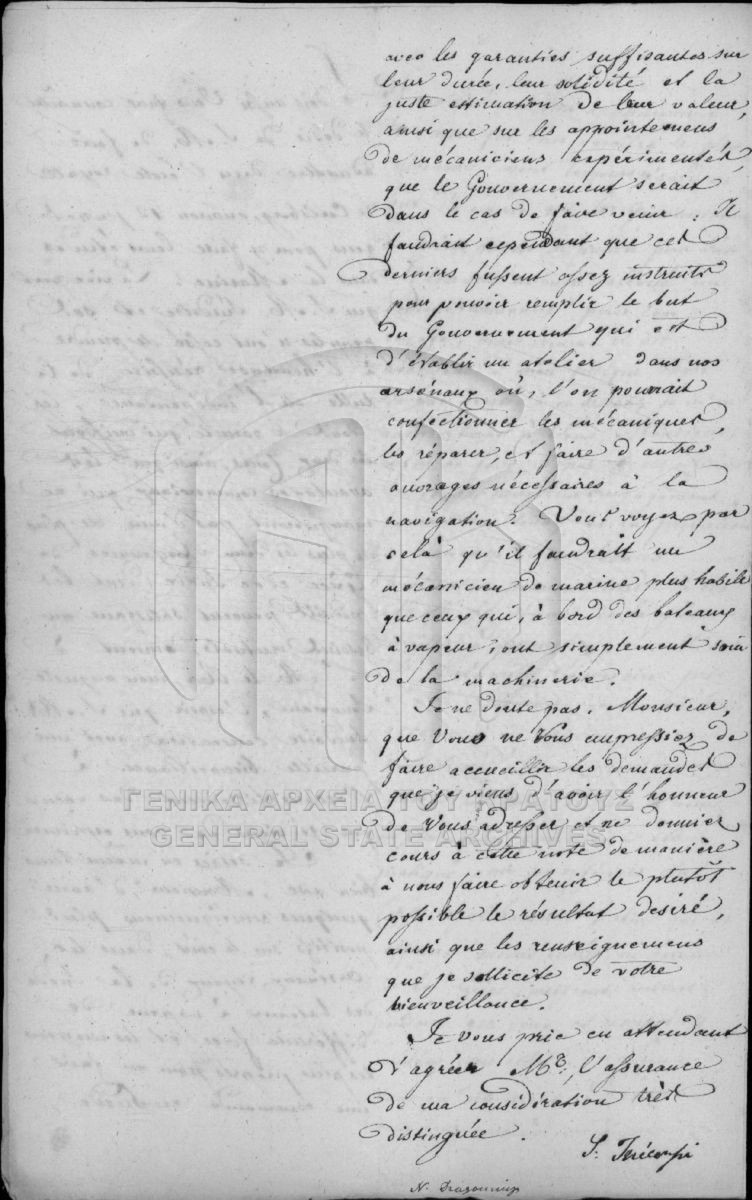 avec les garanties suffisantes sur
leur durée, leur solidité et la
juste estimation de leur valeur,
ainsi que sur les appointemens
de mécaniciens expérimentés,
que le Gouvernement serait
dans le cas de faire venir. Il
faudrait cependant que ces
derniers fussent assez instruits
pour pouvoir remplir le but
du Gouvernement qui est
d'établir un atelier dans nos
arsénaux où, l'on pourrait
confectionner les mécaniques,
les réparer, et faire d'autres
ouvrages nécessaires à la
navigation. Vous voyez par
celà qu'il faudrait un
mécanicien de marine plus habile
que ceux qui, à bord des bateaux
à vapeur, ont simplement soin
de la machinerie.
Je ne doute pas, Monsieur,
que Vous ne Vous empressiez de
faire accueillir les demandes
que je viens d'avoir l'honneur
de Vous adresser et ne donnier
cours à cette note de manière
à nous faire obtenir le plutôt
possible le résultat desiré,
ainsi que les renseignemens
que je sollicite de votre
bienveillance.
Je vous prie en attendant
d'agréer Mr., l'assurance
de ma considération très
distinguée.
S. Tricoupi
N. Dragoumis
ΓΕΝΙΚΑ ΑΡΧΕΙΑ ΤΟΥ ΚΡΑΤΟΥΣ
GENERAL STATE ARCHIVES